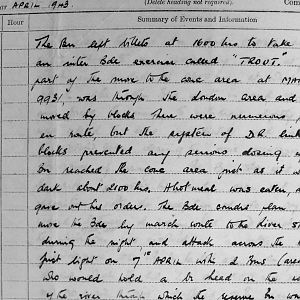 APRIL 1943
(Delete heading not required).
Com
Hour
Summary of Events and Information
The Bn left billets at 1600 hrs to take
an inter Bde exercise called "TROUT".
part of the move to the conc area at
993, was through the London area and
moved by blocks there were numerous
en route, but the system of D.R. link
blocks prevented any serious closing
Bn reached the conc area just as it w
dark about 2100 hrs. A hot meal was eaten,
gave out his orders. The Bde comdrs plan
move the Bde by march route to the River
during the night and attack across the
first light on 7th APRIL with 2 Bns
who would hold a br head on the
of the river through which the reserve Bn